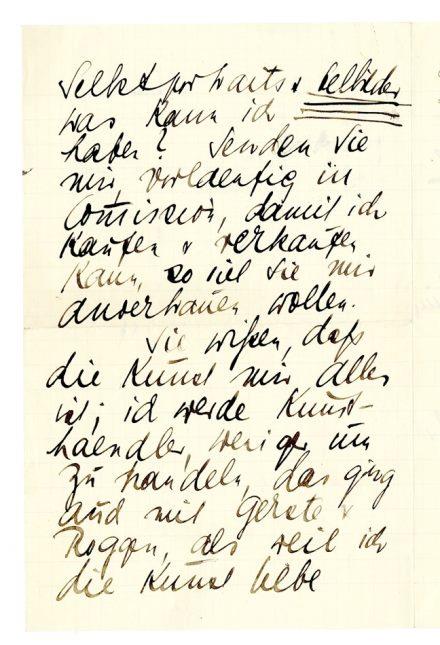 Selbstportraits u Oelbilder
was kann ich
haben? Senden Sie
mir, vorlaeufig in
Comission, damit ich
kaufen u verkaufen
kann, so viel Sie mir
anvertrauen wollen.
Sie wißen, daß
die Kunst mir alles
ist; ich werde Kunst-
haendler, weniger um
zu handeln, das ging
auch mit Gerste u
Roggen, als weil ich
die Kunst liebe